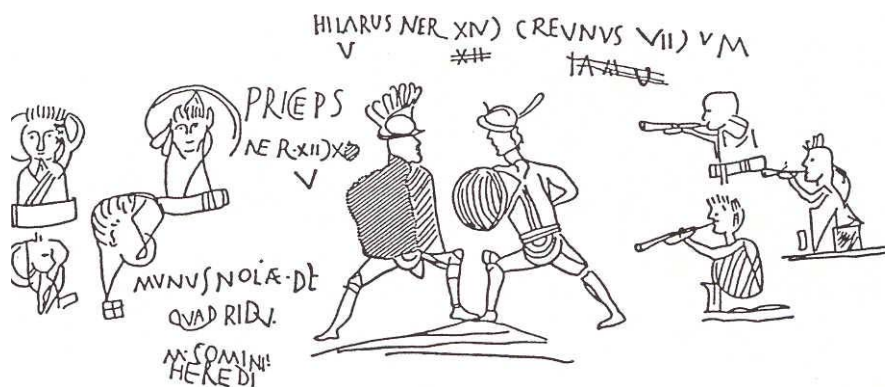 HILARUS NER XIV) CREVNVS VII) V M
V XII
PRICEPS
NER·XII) X
V
MVNUS NOLÆ·DE
QVADRIDV·
M·SOMINI:
HEREDI